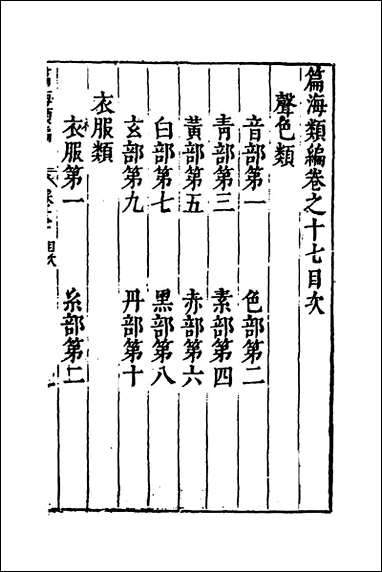 篇海類編卷之十七目次
聲色類
音部第一 色部第二
青部第三 素部第四
黃部第五 赤部第六
白部第七 黑部第八
玄部第九 丹部第十
衣服類
衣服第一 糸部第二